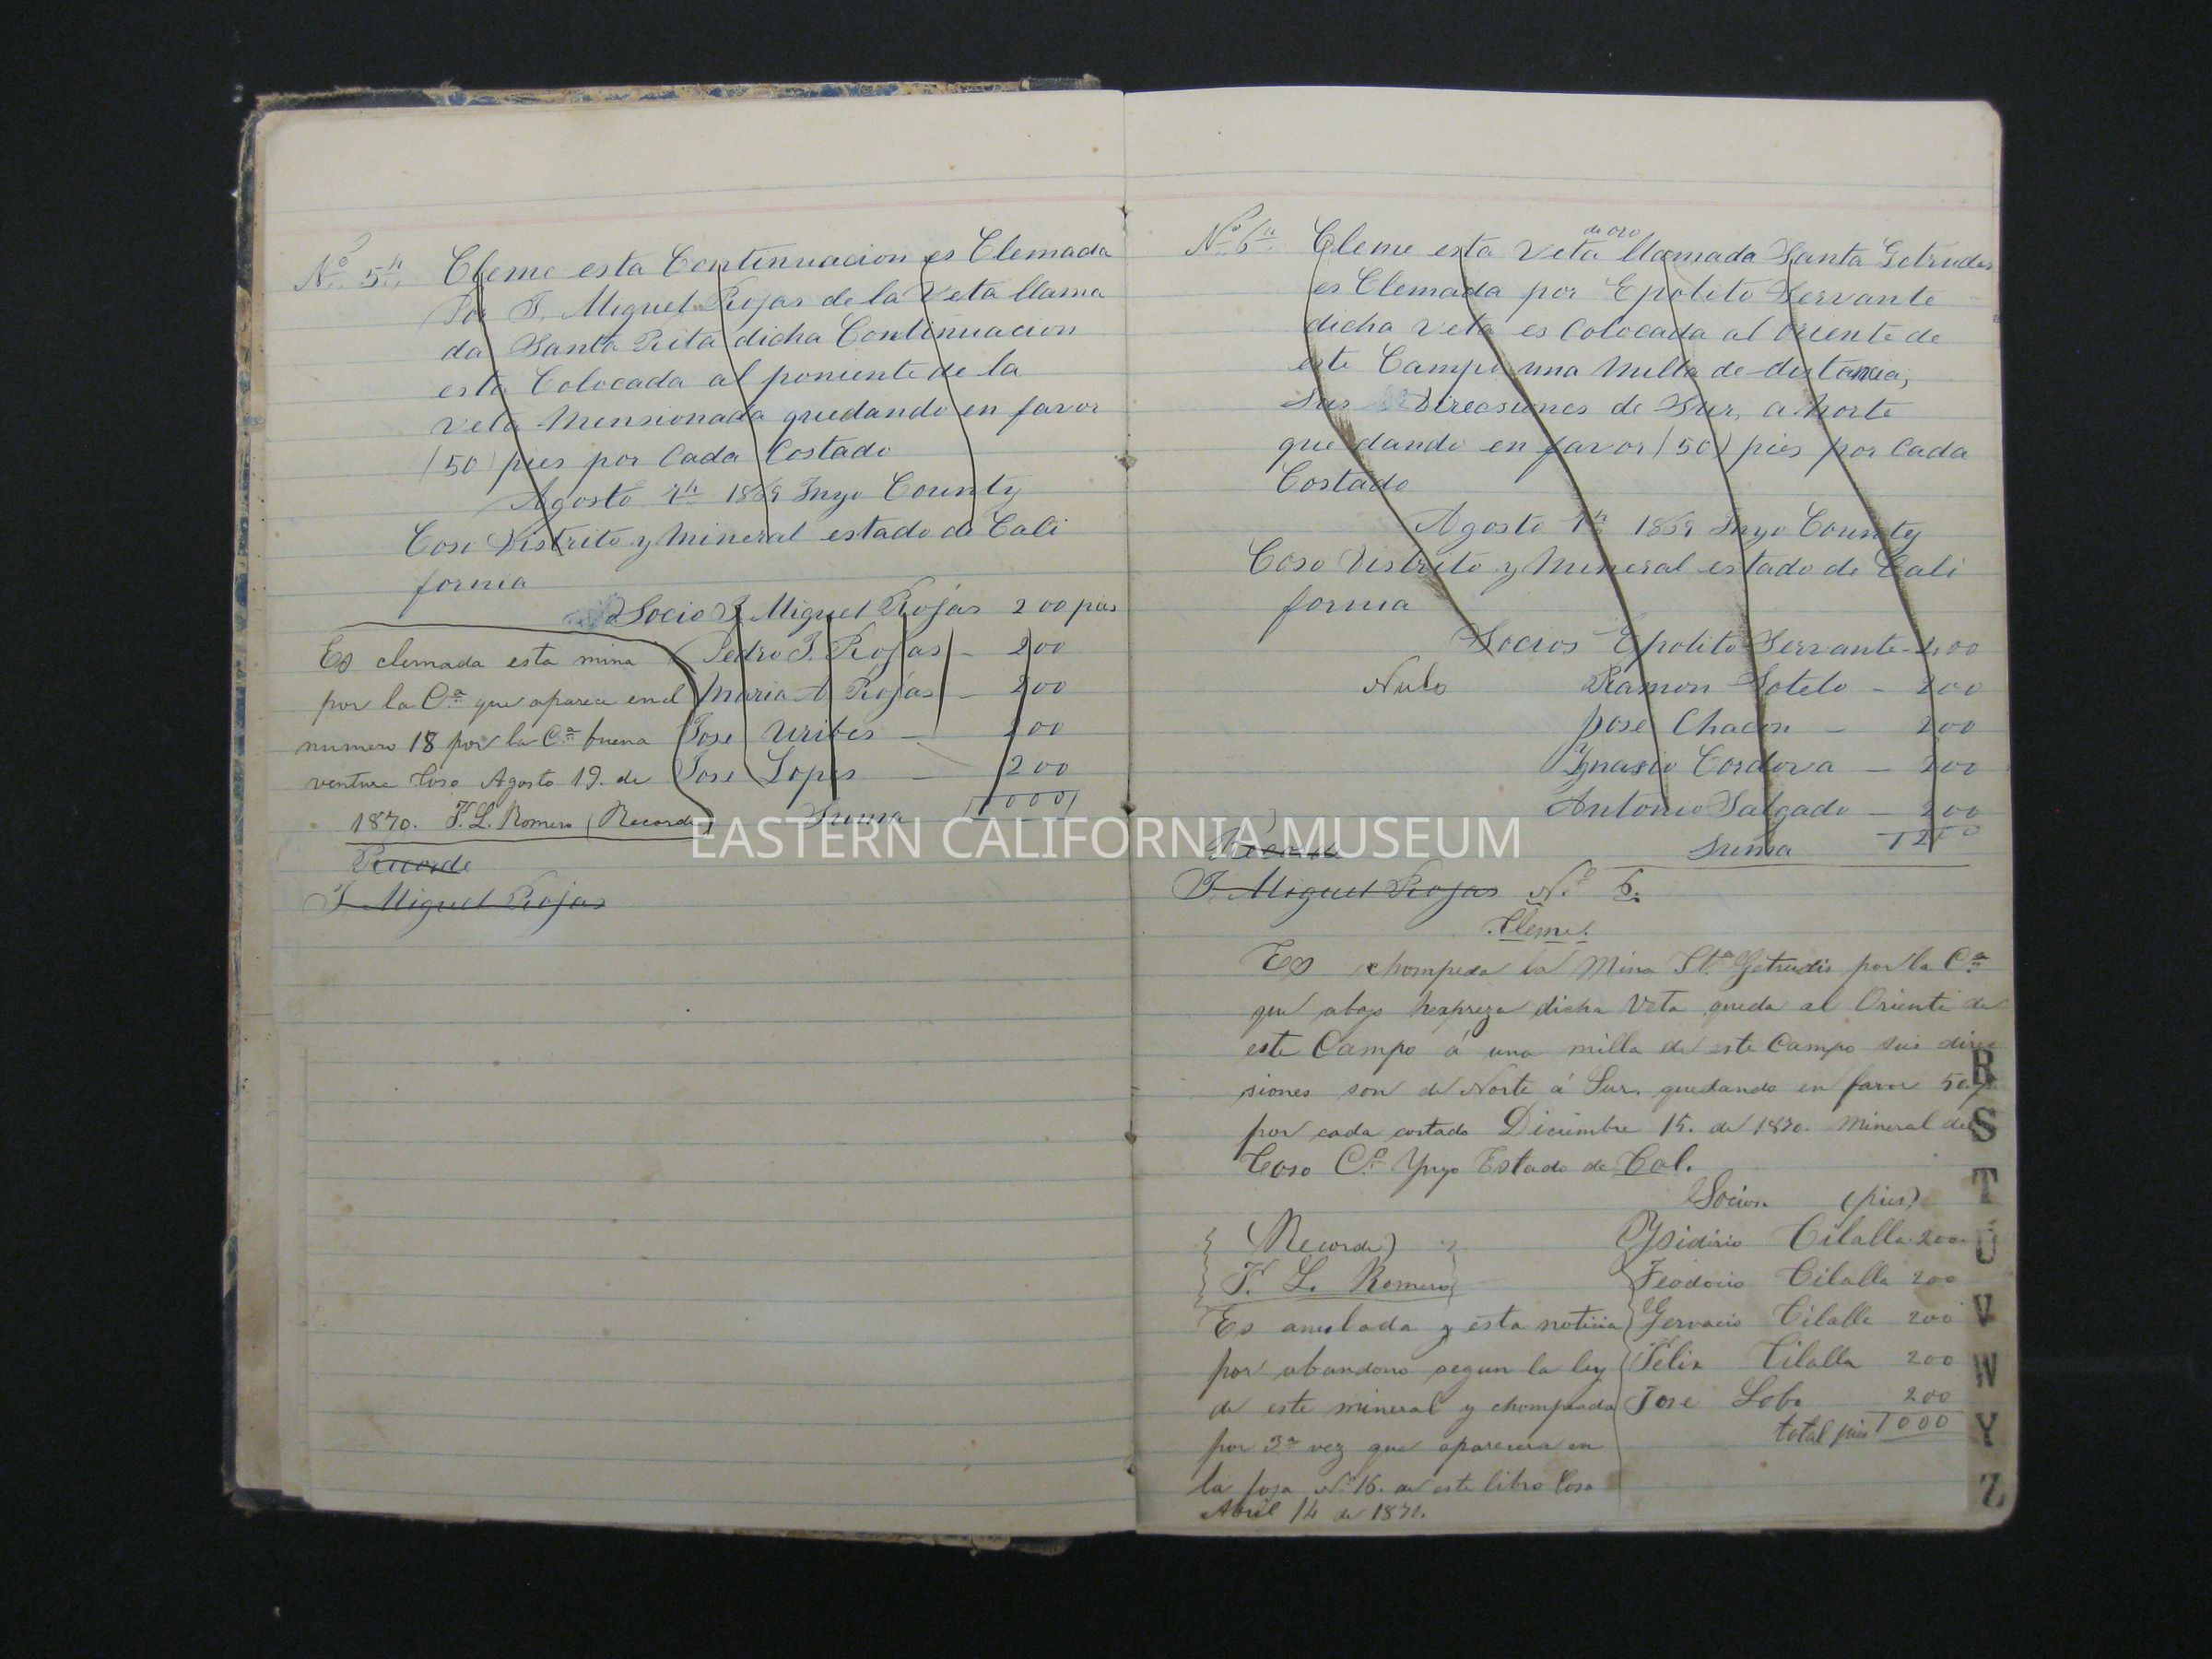 No. 5th Cleme esta Continuacion es Clemada
Por J. Miguel Rojas de la Veta llama
da Santa Rita dicha Continuacion
esta Colocada al poniente de la
veta Mensionada quedando en favor
(50) pies por Cada Costado
Agosto 1869 Inyo County
Coso Distrito y Mineral estado de Cali
fornia
Socio J. Miguel Rojas 200 pies
Pedro J. Rojas - 200
Maria A Rojas - 200
Jose Uribes - 200
Jose Lopes - 200
Suma 1000
Es clemada esta mina
por la Ca. que aparece en el
numero 18 por la Ca. buena
ventura Coso Agosto 19. de
1870. F. L. Romero (Recorde)
Recorde
J. Miguel Rojas
No. 6th Cleme esta Veta de oro llamada Santa Getrudes
es Clemada por Epolito Servante
dicha veta es Colocada al Oriente de
este Campo una Milla de distancia,
Sus Direcsiones de Sur, a Norte
quedando en favor (50) pies por Cada
Costado
Agosto 1869 Inyo County
Coso Distrito y Mineral estado de Cali
fornia
Socios Epolito Servante - 200
Nulo Ramon Sotelo - 200
Jose Chacon - 200
Ygnasio Cordova - 200
Antonio Salgado - 200
Suma
Recorde
J. Miguel Rojas No. 6.
Cleme.
Es chompeda la Mina Sta. Getrudis por la Ca.
que abajo hexpreza dicha Veta queda al Oriente de
este Campo á una milla de este Campo sus direc
siones son de Norte á Sur. quedando en favor 50 p
por cada costado Diciembre 15. de 1870. Mineral del
Coso Co. Ynyo Estado de Cal.
Socios (pies)
(Recorde) Ysidirio Cilalla 200.
F. L. Romero Teodocio Cilalla 200
Gervacio Cilalla 200
Felix Cilalla 200
Jose Lobo 200
total pies 1000
Es anulada y esta noticia
por abandono segun la ley
de este mineral y chompeada
por 3a vez que aparecera en
la foja No 16. de este libro Coso
Abril 14 de 1871.
R
S
T
U
V
W
Y
Z
EASTERN CALIFORNIA MUSEUM